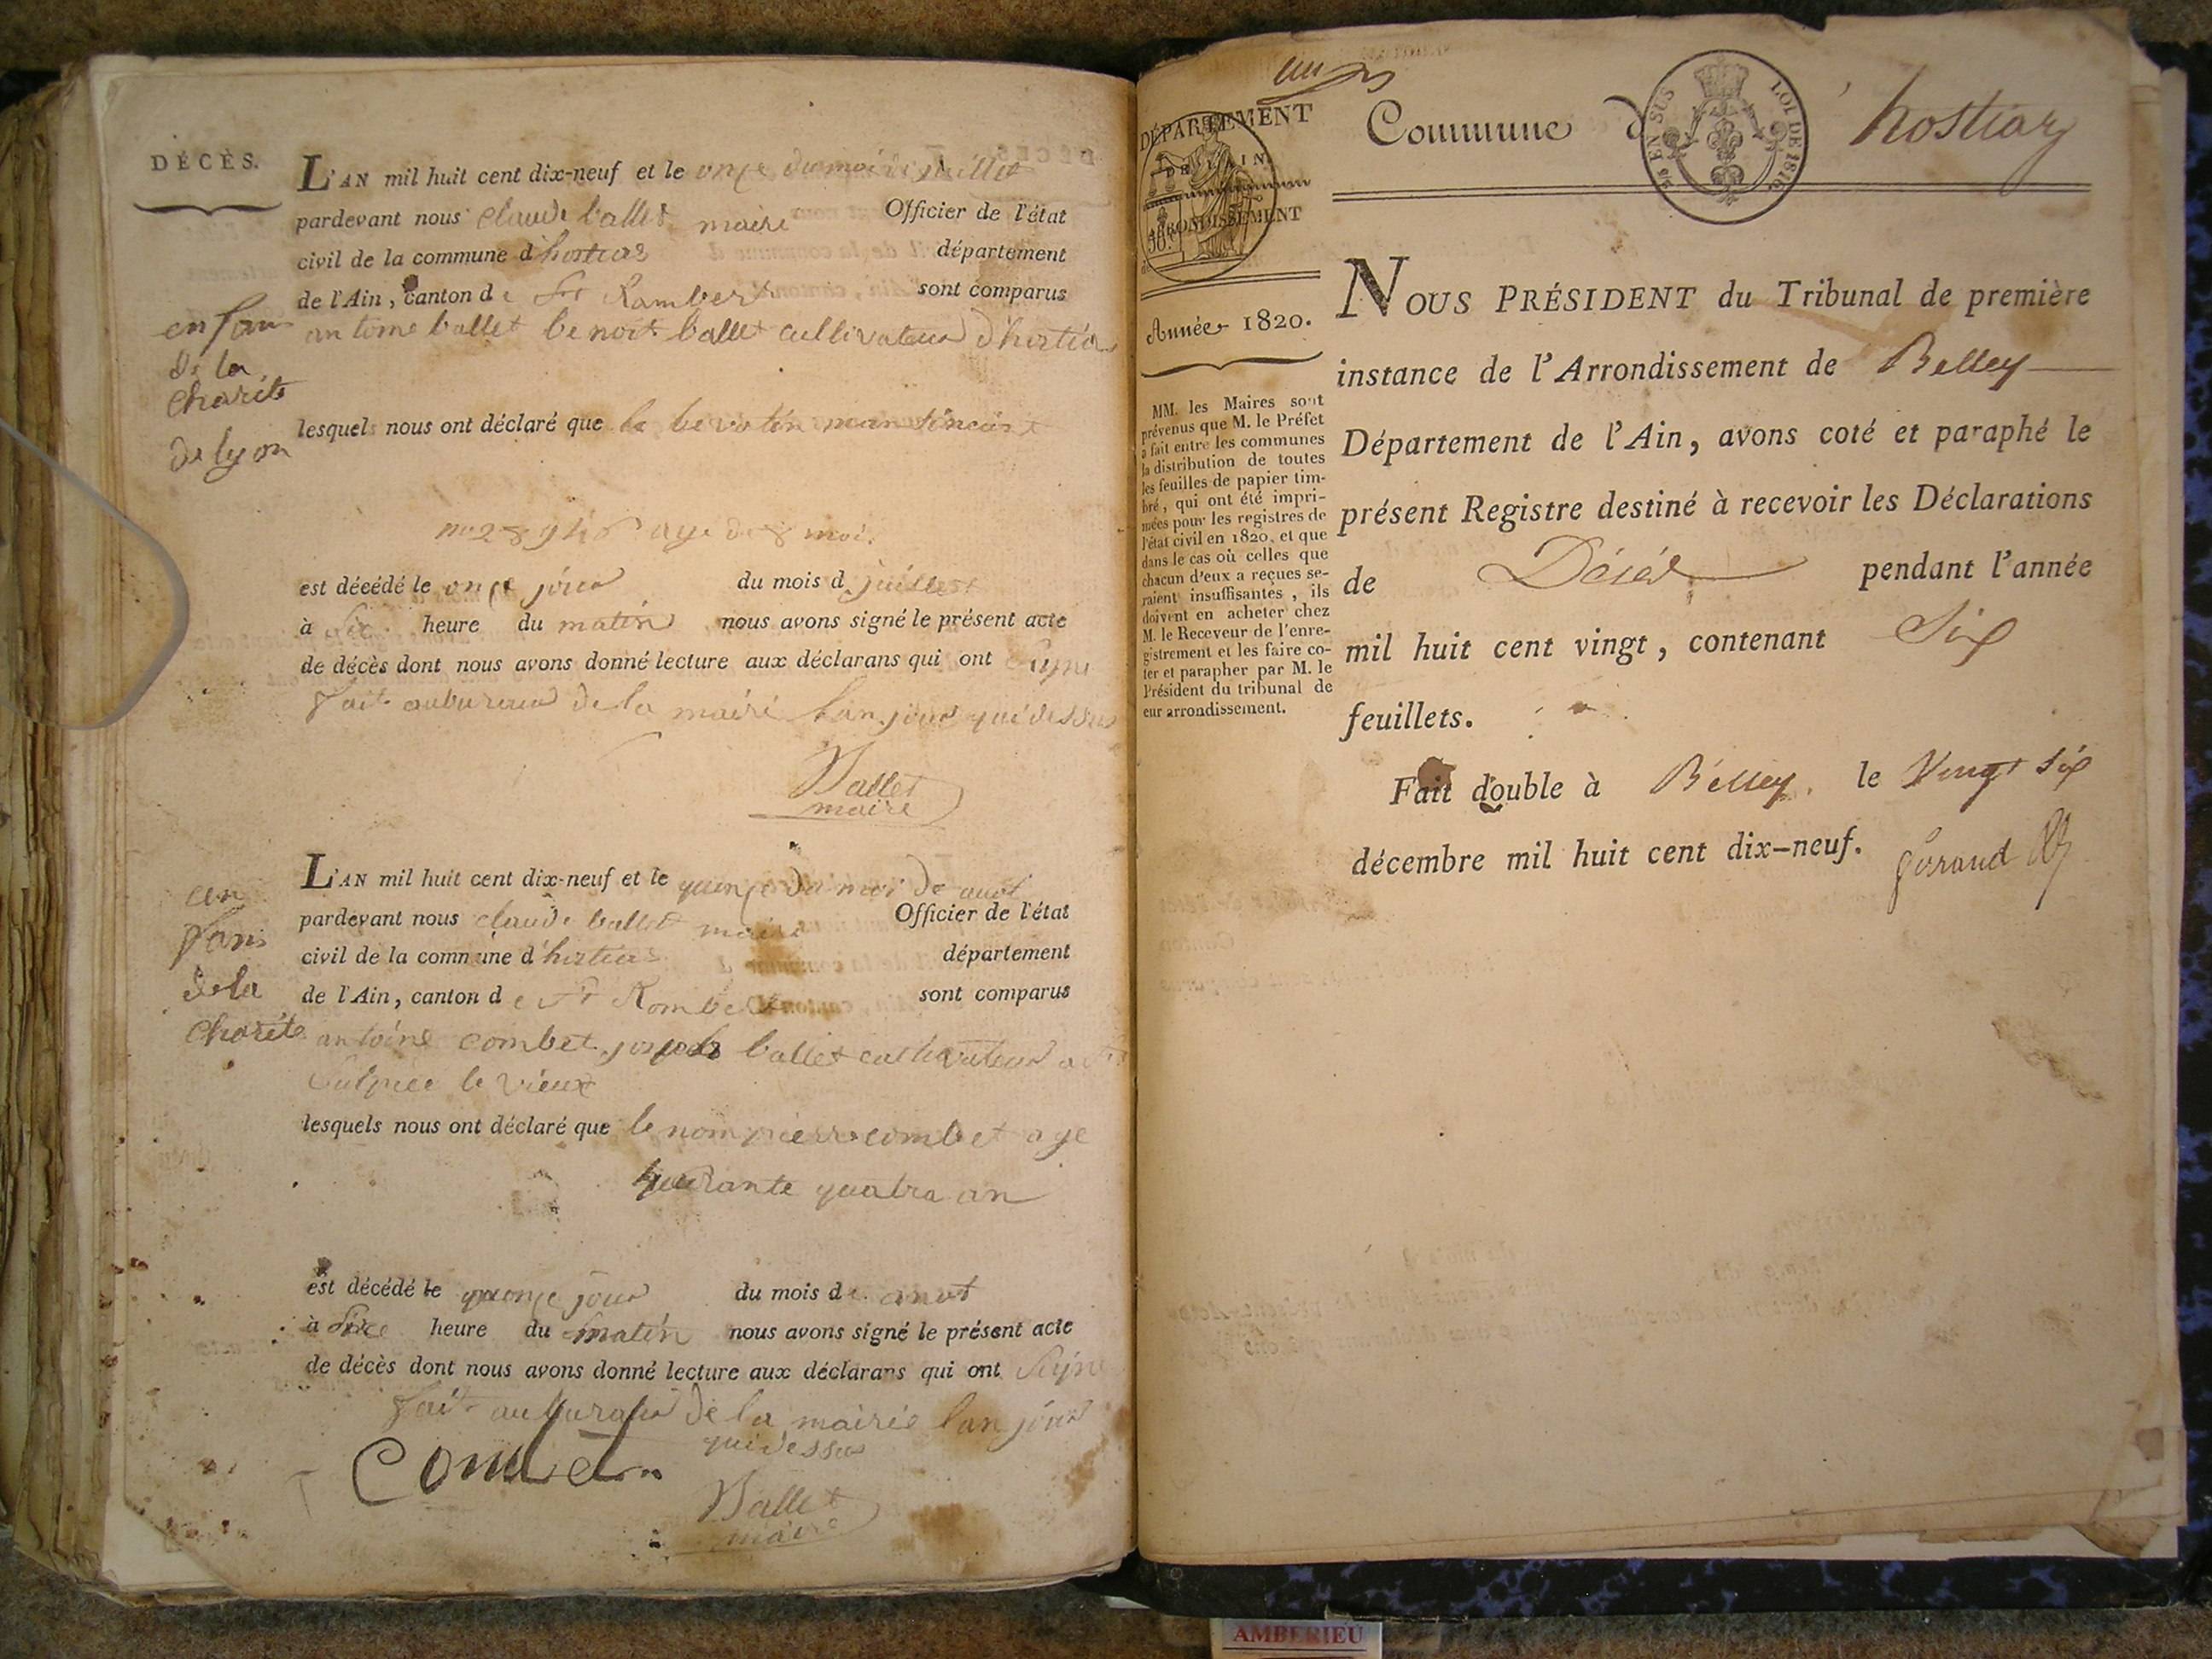 DÉCÈS.
L'AN mil huit cent dix-neuf et le onze du moi de juillet
pardevant nous Claude ballet maire Officier de l'état
civil de la commune d'hostias département
de l'Ain, canton de St Rambert sont comparus
antoine ballet benoit ballet cultivateur d'hostias
enfans
de la
charité
de lyon
lesquels nous ont déclaré que
age de 8 moi
est décédé le onze jour du mois de juillet
à Six heure du matin nous avons signé le présent acte
de décès dont nous avons donné lecture aux déclarans qui ont Signe
fait au bureau de la mairie lan jour qui dessus
Ballet
maire
L'AN mil huit cent dix-neuf et le quinze du moi de aout
pardevant nous claude ballet maire Officier de l'état
civil de la commune d'hostias département
de l'Ain, canton de St Rambert sont comparus
en
fans
de la
charité
antoine combet joseph ballet cultivateur a St
Sulpice le vieux
lesquels nous ont déclaré que le nom pierre combet age
quarante quatre an
est décédé le quinze jour du mois de aout
à Six heure du matin nous avons signé le présent acte
de décès dont nous avons donné lecture aux déclarans qui ont Signe
fait au bureau de la mairie lan jour
qui dessus
Combet
Ballet
maire
DÉPARTEMENT
DE L'AIN.
ARRONDISSEMENT
de
Année 1820.
MM. les Maires sont
prévenus que M. le Préfet
a fait entre les communes
la distribution de toutes
les feuilles de papier tim-
bré, qui ont été impri-
mées pour les registres de
l'état civil en 1820, et que
dans le cas où celles que
chacun d'eux a reçues se-
raient insuffisantes, ils
doivent en acheter chez
M. le Receveur de l'enre-
gistrement et les faire co-
ter et parapher par M. le
Président du tribunal de
eur arrondissement.
Commune d'hostiaz
EN SUS LOI DE 1816
NOUS PRÉSIDENT du Tribunal de première
instance de l'Arrondissement de Belley
Département de l'Ain, avons coté et paraphé le
présent Registre destiné à recevoir les Déclarations
de Décès pendant l'année
mil huit cent vingt, contenant Six
feuillets.
Fait double à Belley, le Vingt Six
décembre mil huit cent dix-neuf.
AMBERIEU